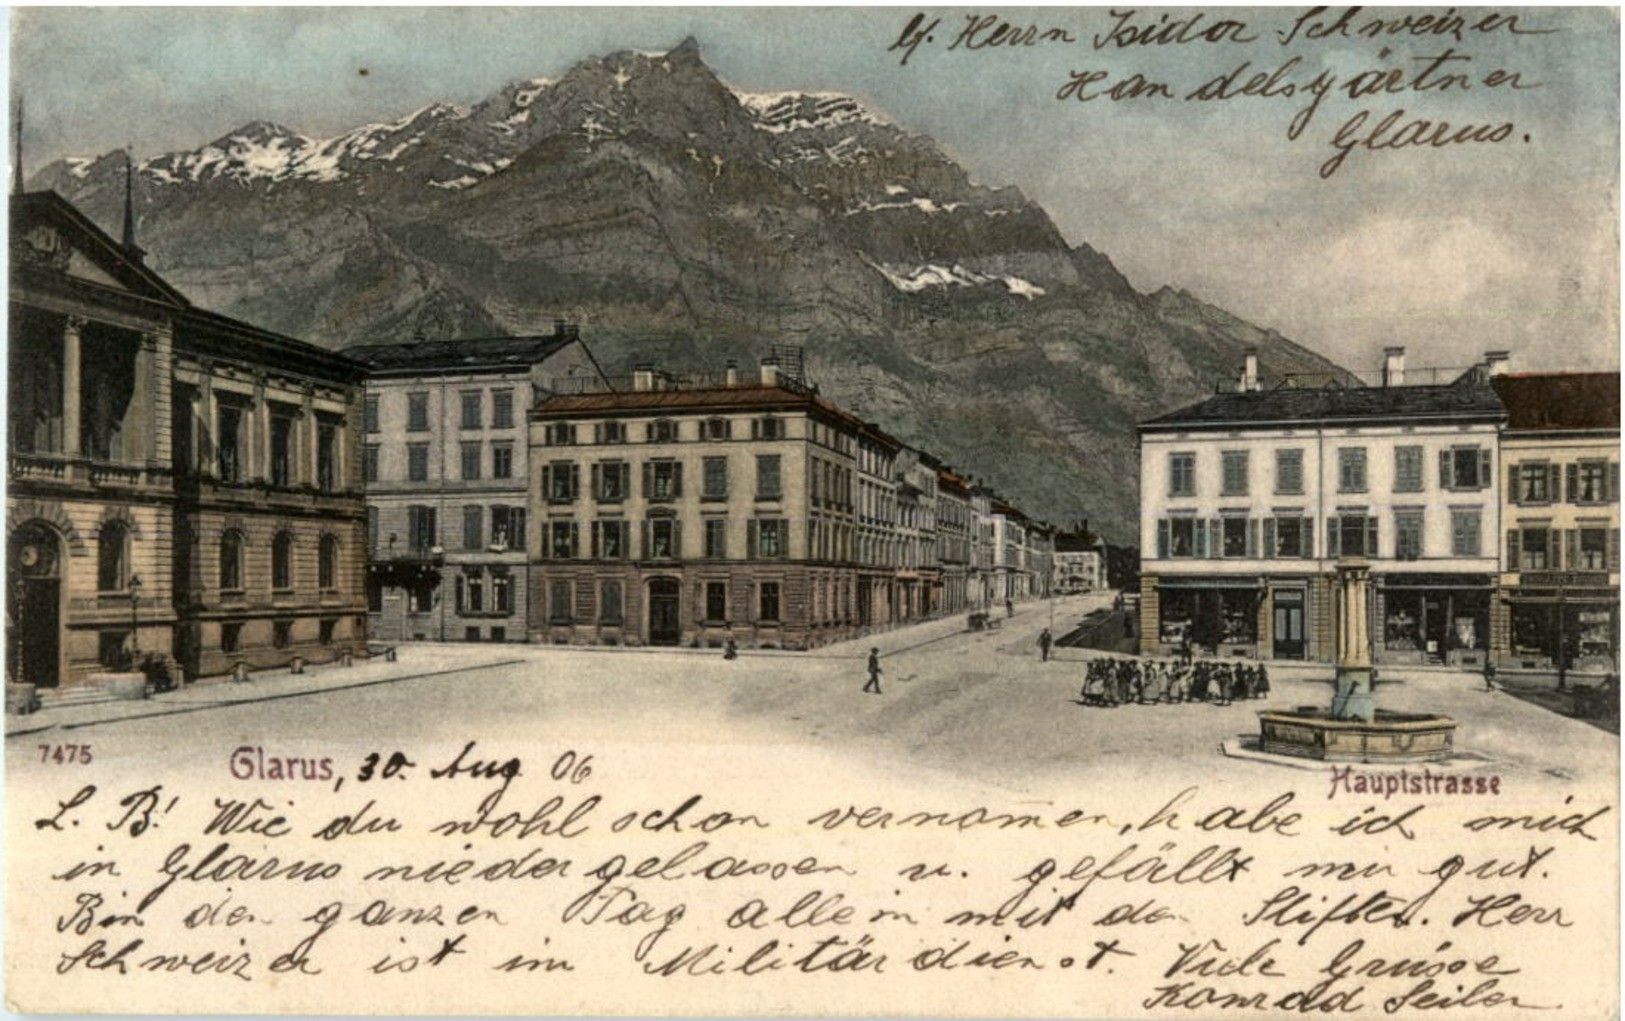 bf. Herrn Isidor Schweizer
Handelsgärtner
Glarus.
7475
Glarus, 30. Aug 06
Hauptstrasse
L. B! Wie du wohl schon vernom̄en, habe ich mich
in Glarus niedergelassen u. gefällt mir gut.
Bin den ganzen Tag allein mit den Stiften. Herr
Schweizer ist im Militärdienst. Viele Grüsse
Konrad Seiler.